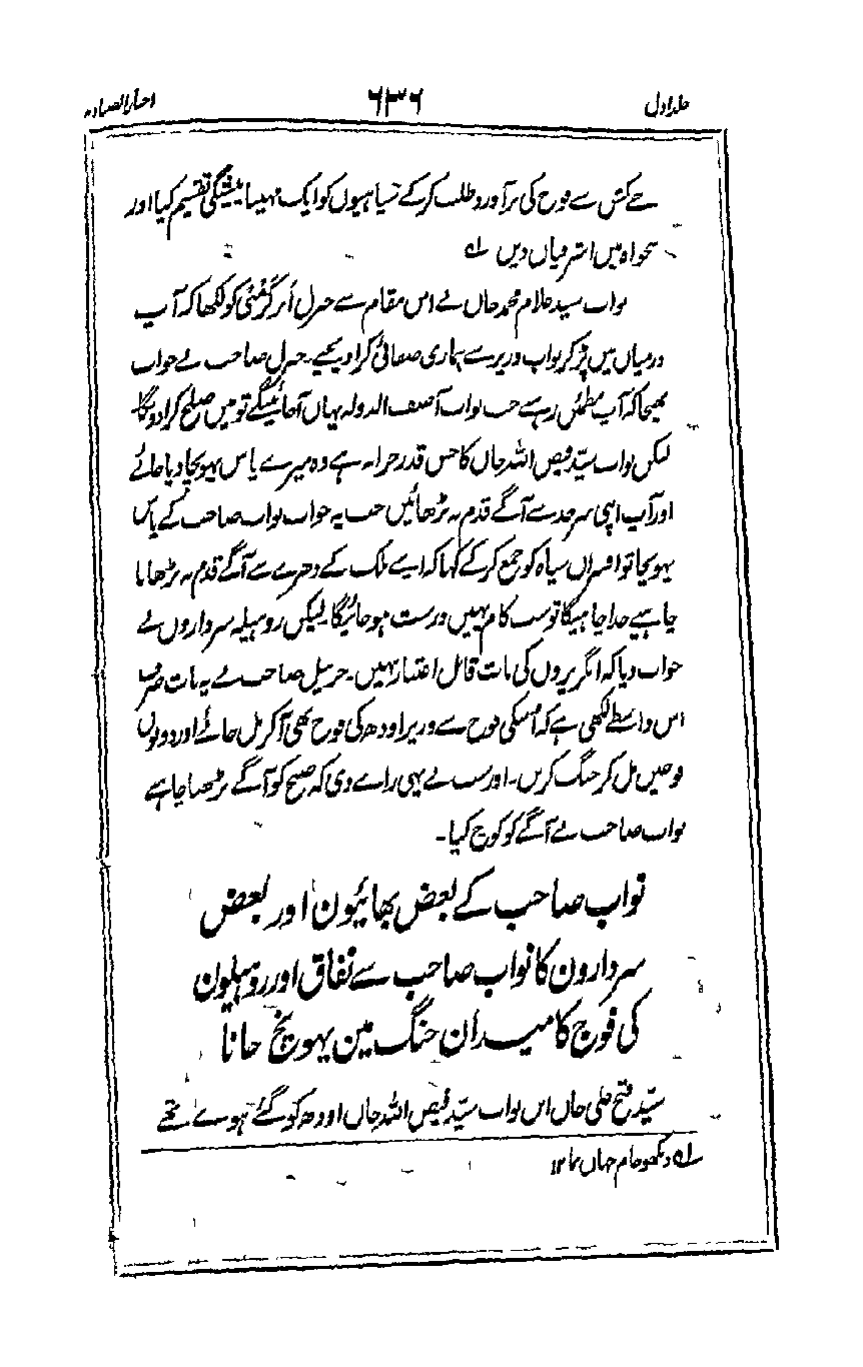 جلد اول ۶۳۶ اخبار الصنادید
نے بخشی سے فوج کی برآورد طلب کرکے سپاہیوں کو ایک مہینا پیشگی تقسیم کیا اور
تنخواہ میں اشرفیاں دیں لہ
نواب سید غلام محمد خاں نے اس مقام سے جنرل ابرکرمبی کو لکھا کہ آپ
درمیاں میں پڑ کر نواب وزیر سے ہماری صفائی کرا دیجیے۔ جنرل صاحب نے جواب
بھیجا کہ آپ مطمئن رہیے جب نواب آصف الدولہ یہاں آجائینگے تو میں صلح کرا دونگا
لیکن نواب سیّد فیض اللہ خاں کا جس قدر خزانہ ہے وہ میرے پاس پہونچا دیا جائے
اور آپ اپنی سرحد سے آگے قدم نہ بڑھائیں جب یہ جواب نواب صاحب کے پاس
پہونچا تو افسراں سپاہ کو جمع کرکے کہا کہ اپنے ملک کے دھرے سے آگے قدم نہ بڑھانا
چاہیے خدا چاہیگا تو سب کام یہیں درست ہو جائیگا لیکن روہیلہ سرداروں نے
جواب دیا کہ انگریزوں کی بات قابل اعتبار نہیں۔ جرنیل صاحب نے یہ بات صرف
اس واسطے لکھی ہے کہ اُسکی فوج سے وزیر اودھ کی فوج بھی آکر مل جائے اور دونوں
فوجیں مل کر جنگ کریں۔ اور سب نے یہی راے دی کہ صبح کو آگے بڑھنا چاہیے
نواب صاحب نے آگے کو کوچ کیا۔
نواب صاحب کے بعض بھائیون اور بعض
سردارون کا نواب صاحب سے نفاق اور روہیلون
کی فوج کا میدان جنگ مین پہونچ جانا
سیّد فتح علی خاں ابن نواب سیّد فیض اللہ خاں اودھ کو گئے ہوے تھے
لہ دیکھو جام جہاں نما ۱۲